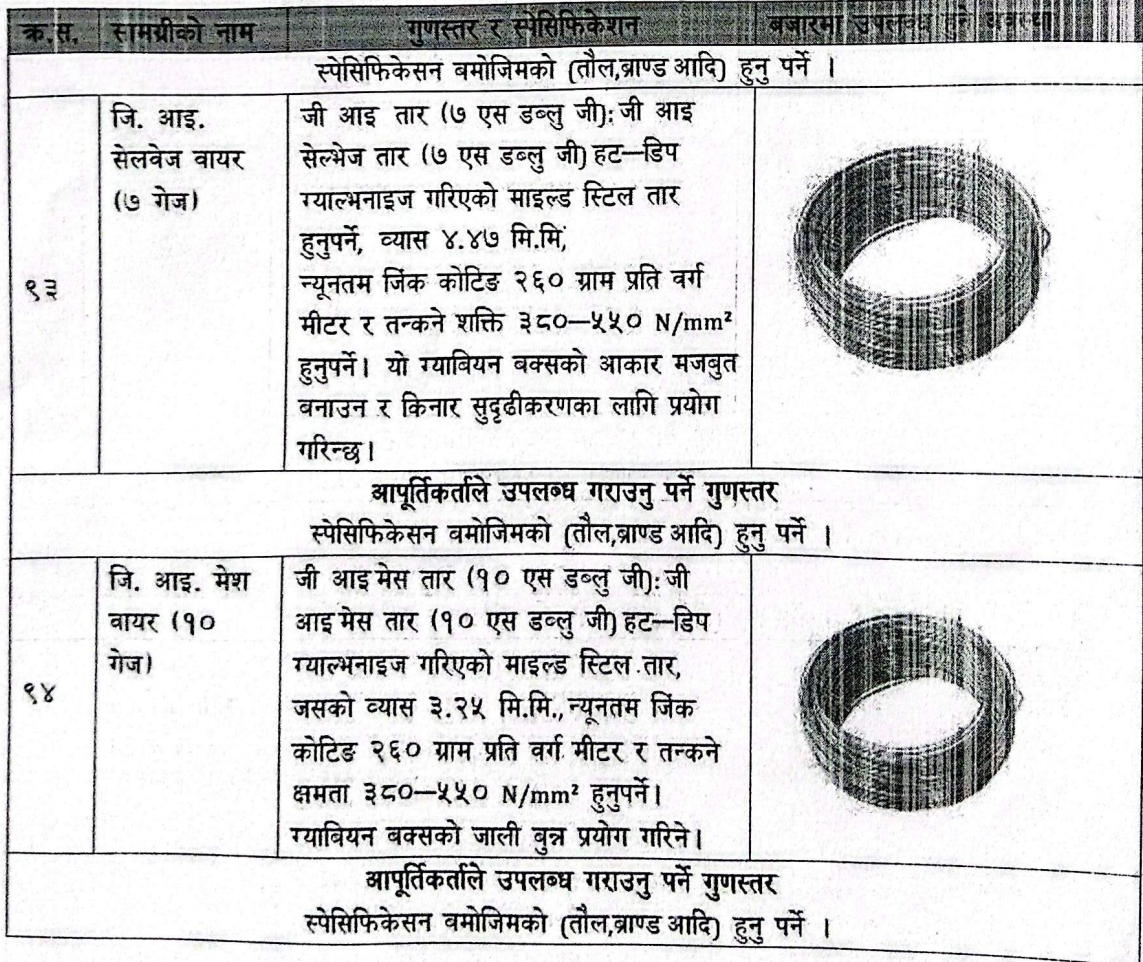 क्र.स. सामग्रीको नाम गुणस्तर र स्पेसिफिकेशन बजारमा उपलब्ध हुने अवस्था
स्पेसिफिकेसन बमोजिमको (तौल,ब्राण्ड आदि) हुनु पर्ने ।
९३
जि. आइ.
सेलवेज वायर
(७ गेज)
जी आइ तार (७ एस डब्लु जी): जी आइ
सेल्भेज तार (७ एस डब्लु जी) हट–डिप
ग्याल्भनाइज गरिएको माइल्ड स्टिल तार
हुनुपर्ने, व्यास ४.४७ मि.मि,
न्यूनतम जिंक कोटिङ २६० ग्राम प्रति वर्ग
मीटर र तन्कने शक्ति ३८०–५५० N/mm²
हुनुपर्ने। यो ग्याबियन बक्सको आकार मजबुत
बनाउन र किनार सुदृढीकरणका लागि प्रयोग
गरिन्छ।
आपूर्तिकर्ताले उपलब्ध गराउनु पर्ने गुणस्तर
स्पेसिफिकेसन वमोजिमको (तौल,ब्राण्ड आदि) हुनु पर्ने ।
९४
जि. आइ. मेश
वायर (१०
गेज)
जी आइ मेस तार (१० एस डब्लु जी): जी
आइ मेस तार (१० एस डब्लु जी) हट–डिप
ग्याल्भनाइज गरिएको माइल्ड स्टिल तार,
जसको व्यास ३.२५ मि.मि., न्यूनतम जिंक
कोटिङ २६० ग्राम प्रति वर्ग मीटर र तन्कने
क्षमता ३८०–५५० N/mm² हुनुपर्ने।
ग्याबियन बक्सको जाली बुन्न प्रयोग गरिने।
आपूर्तिकर्ताले उपलब्ध गराउनु पर्ने गुणस्तर
स्पेसिफिकेसन वमोजिमको (तौल,ब्राण्ड आदि) हुनु पर्ने ।